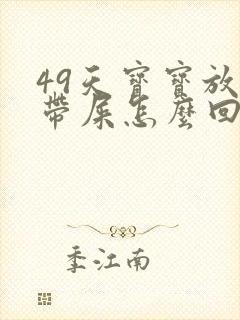 49天寶寶放
帶屎怎麼回
季江南